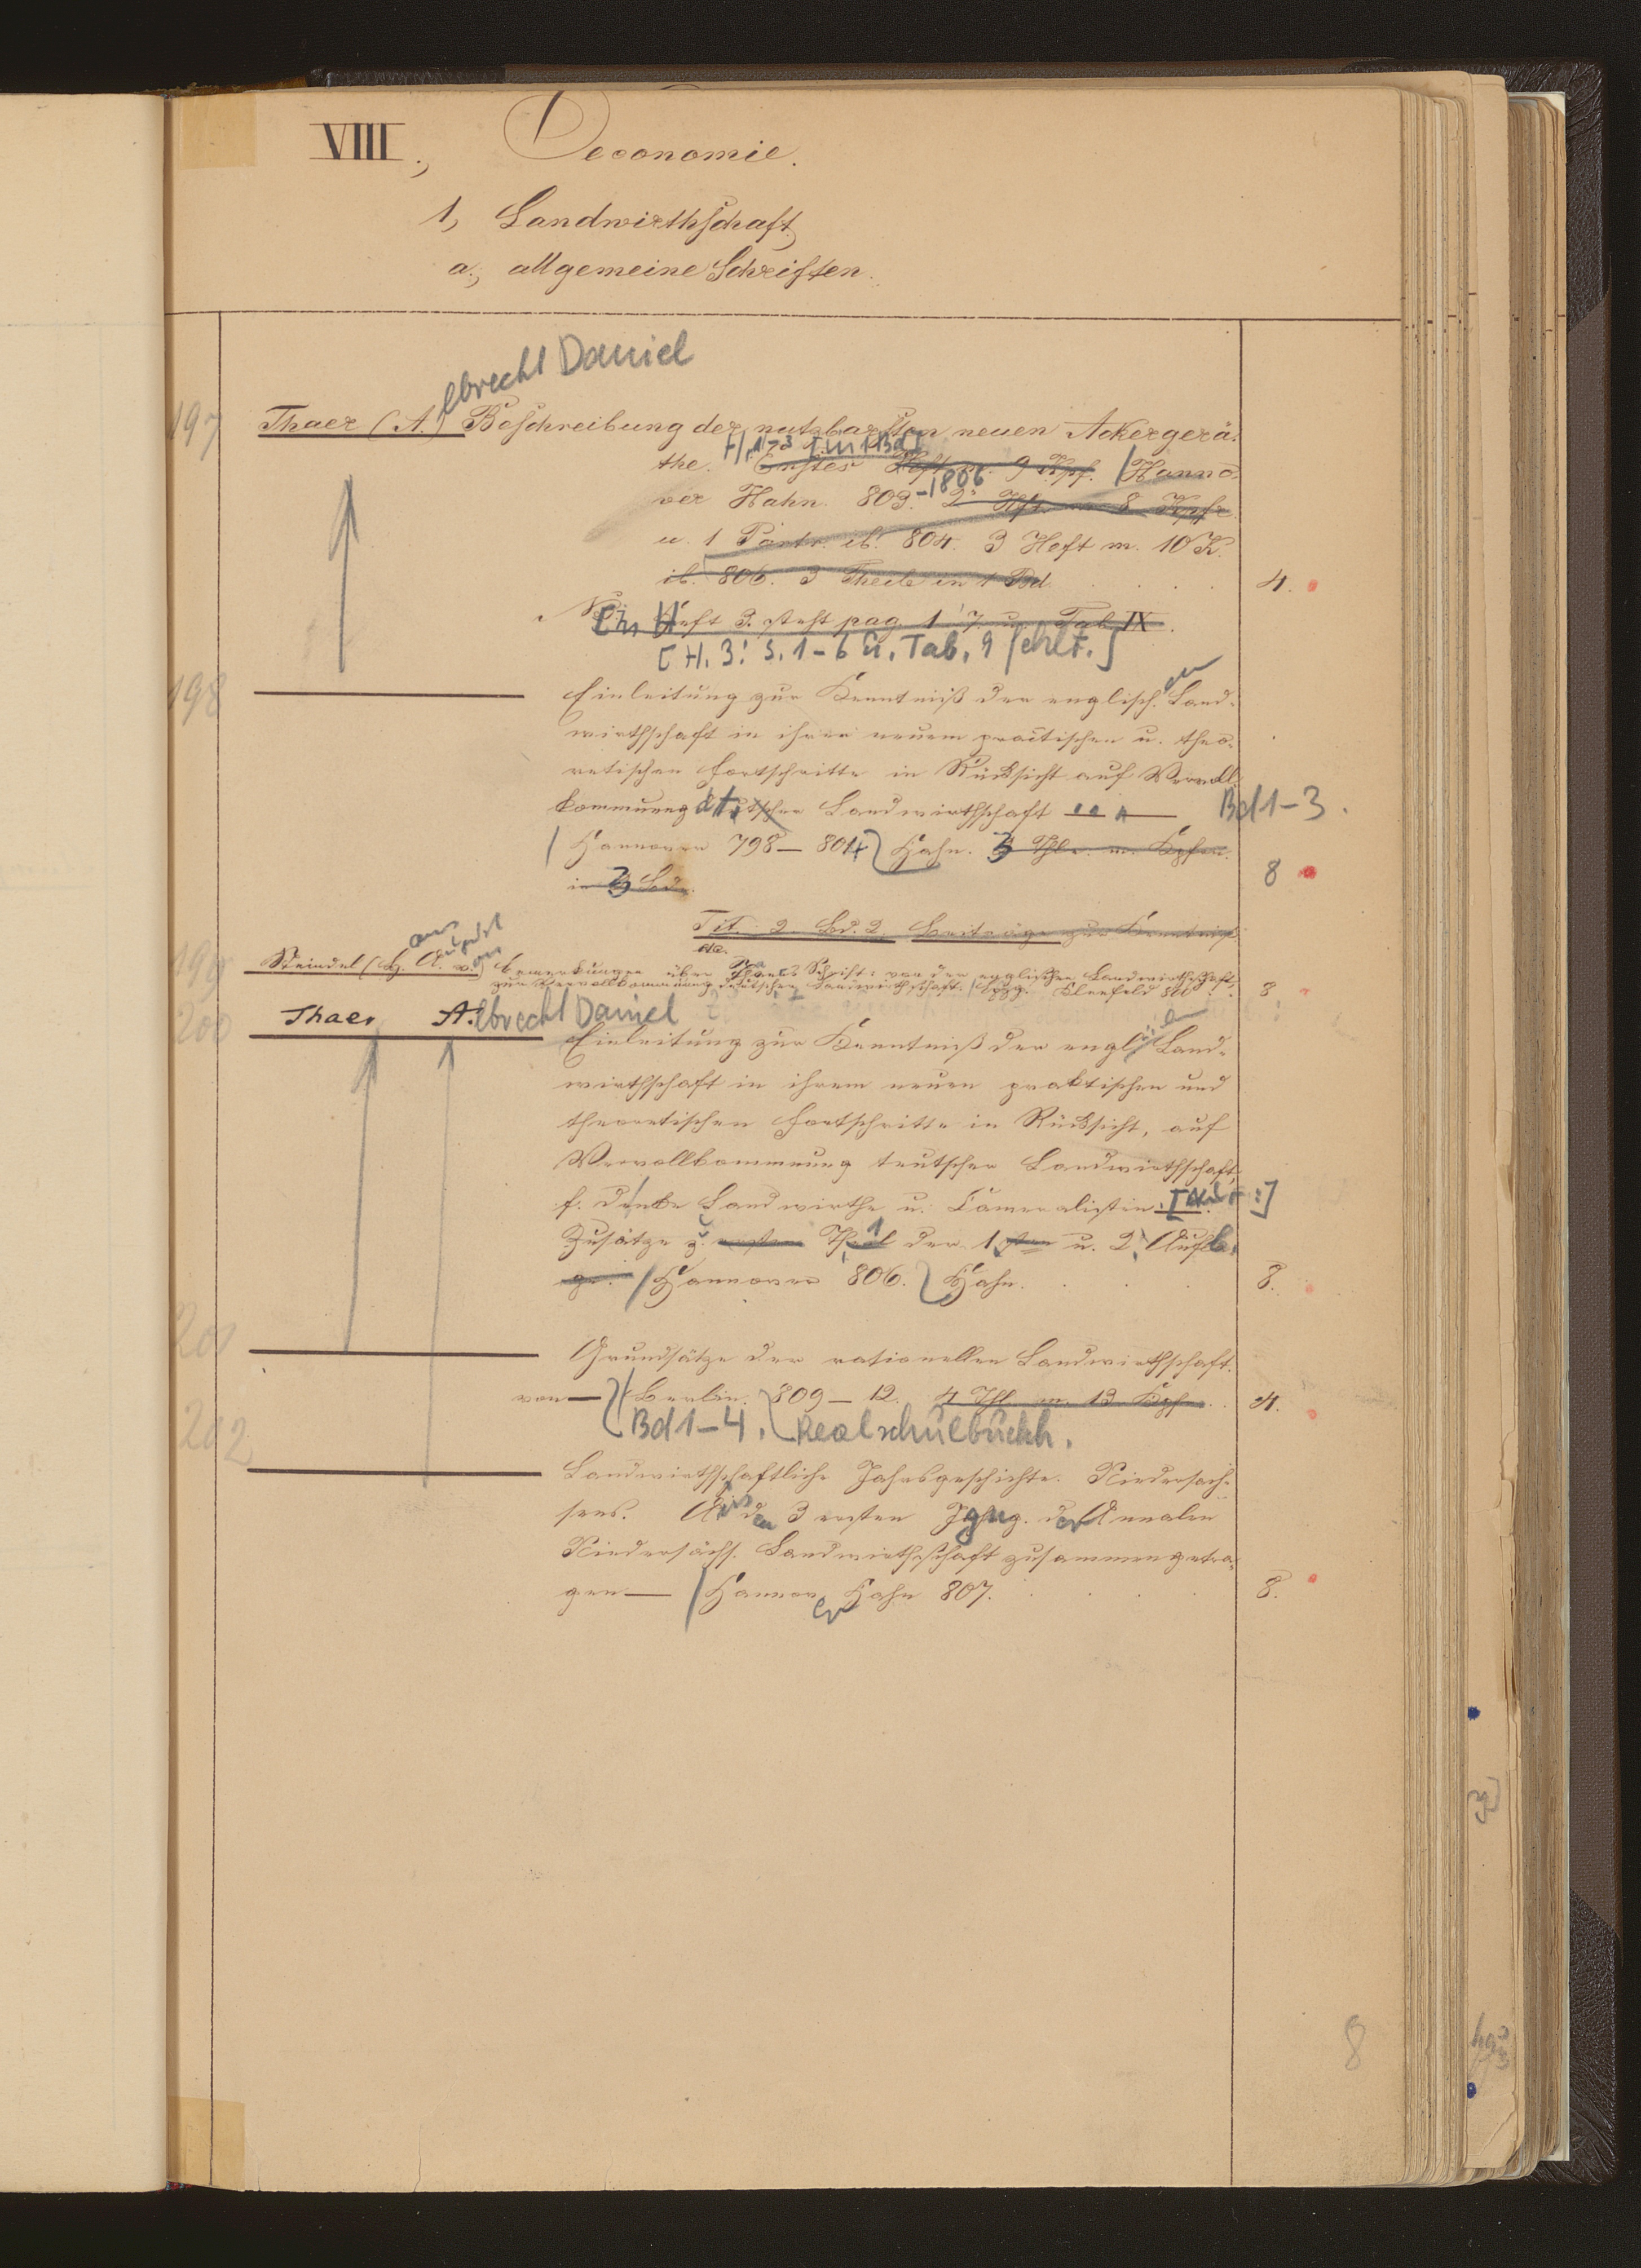 VIII., Oeconomie.
1, Landwirthschaft,
a., allgemeine Schriften.
lbrecht Daniel
197 Thaer (A.) Beschreibung der nutzbarsten neuen Ackergerä-
H. 1-3 [in 1 Bd]
the. Erstes Heft m. 9 Kpf. / Hanno-
ver Hahn. 803.-1806 2s Hft. m 8 Kpfr
u. 1 Portr. ib. 804. 3 Heft m. 10 K.
ib. 806. 3 Theile in 1 Bd. 4.
Heft 3. steht pag 1 7 u. Tab IX.
[H. 3: S. 1-6 u. Tab. 9 fehlt.]
198 Einleitung zur Kenntniß der englisch.en Land-
wirthschaft in ihren neuern practischen u. theo-
retischen Fortschritte in Rücksicht auf Vervoll-
kommnung dt. Landwirthschaft Bd 1-3.
/ Hannover 798-801 Hahn. 3 Thle. m. Kpfrn.
in 3 Bdn. 8
Tit. 2. Bd. 2. Beiträge zur Kenntniß
etc.
199 Steindel (H. A. v.) Bemerkungen über Thaers Schrift: von der englischen Landwirthschaft,
zur Vervollkommnung deutscher Landwirthschaft. / Lpzg. 8
200 Thaer A.lbrecht Daniel
Einleitung zur Kenntniß der engl. Land-
wirthschaft in ihrem neuen praktischen und
theoretischen Fortschritte in Rücksicht, auf
Vervollkommnung teutscher Landwirthschaft,
f. denke Landwirthe u. Cameralisten.
Zusätze z. ersten Theil der 1sten u. 2. Aufla-
ge. / Hannover 806. Hahn. 8.
201 Grundsätze der rationellen Landwirthschaft.
von — / Berlin. 809-12. 4 Thl. m. 13 Kpfr. 4.
Bd 1-4. Realschulbuchh.
202 Landwirthschaftliche Jahrsgeschichte. Niedersach-
sens. Aus den 3 ersten Jgng. der Annalen
Niedersächs. Landwirthschaft zusammengetra-
gen — / Hannover Hahn 807. 8.
8